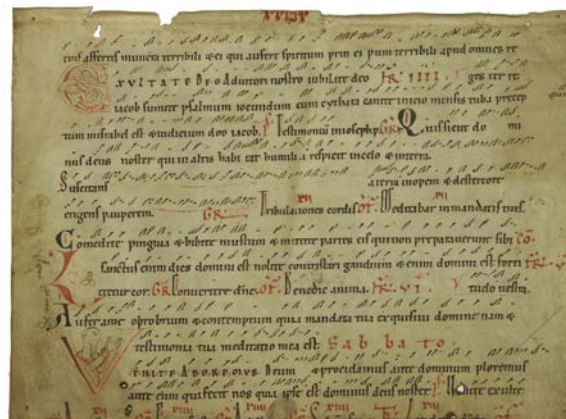 cuis affertis munera terribili & ei qui aufert spiritum prin ci pum terribili apud omnes re
EXVLTATE DEO Adiutori nostro iubilate deo FR IIII ges ter re
iacob sumite psalmum iocundum cum cythara canite inicio mensis tuba precep
tum in israhel est & iudicium deo iacob Testimoniu inioseph GR Quis sicut do mi
nus deus noster qui in altis habi tat humilia respicit in celo & in terra
Suscitans a terra inopem & de stercore
erigens pauperem GR XII Tribulationes cordis OF XII Meditabar in mandatis tuis
Comedite pinguia & bibite mustum & mittite partes eis qui non preparaverunt sibi CO
sanctus enim dies domini est nolite contristari gaudium & enim domini est forti
Letetur cor GR Convertere dne OF Benedic anima FR VI tudo vestra
Aufer a me obrobrium & contemptum quia mandata tua exquisiui domine nam &
testimonia tua meditatio mea est Sabbato
VENITE ADOREMUS Deum & procidamus ante dominum ploremus
ante eum qui fecit nos quia ipse est dominus deus noster